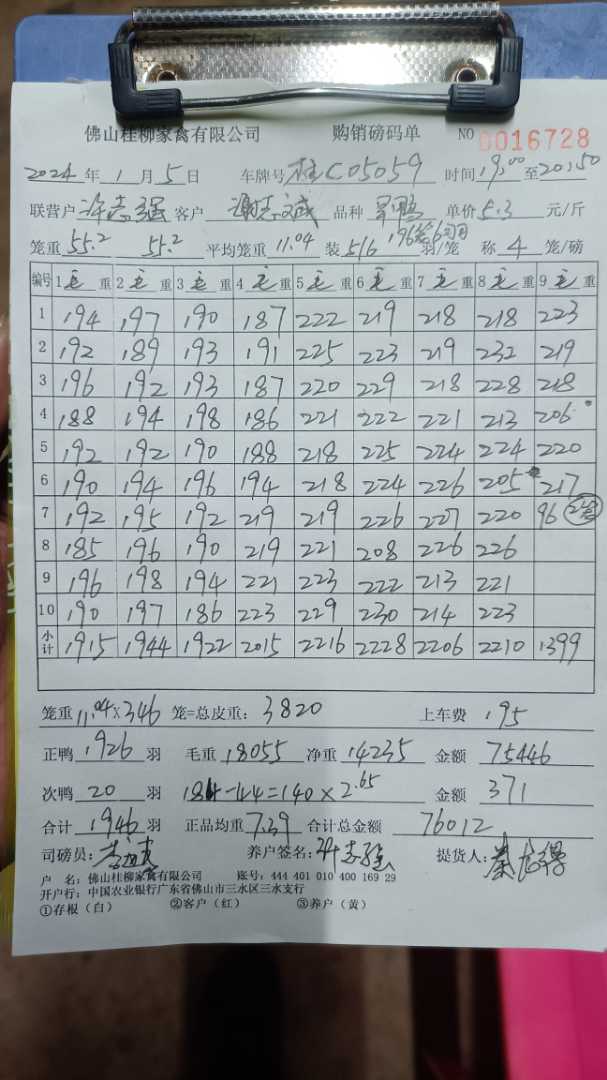 佛山桂柳家禽有限公司 购销磅码单 NO 0016728
2024年1月5日 车牌号 桂C05059 时间19:00至20:50
联营户 许志强 客户 品种 单价5.3元/斤
笼重55.2 55.2 平均笼重11.04 装5/6羽/笼 称4笼/磅
编号 1毛重 2毛重 3毛重 4毛重 5毛重 6毛重 7毛重 8毛重 9毛重
1 194 197 190 187 222 219 218 218 223
2 192 189 193 191 225 223 219 232 219
3 196 192 193 187 220 229 218 228 218
4 188 194 198 186 221 222 221 213 206
5 192 192 190 188 218 225 224 224 220
6 190 194 196 194 218 224 226 205 217
7 192 195 192 219 219 226 227 220 96
8 185 196 190 219 221 208 226 226
9 196 198 194 221 223 222 213 221
10 190 197 186 223 229 230 214 223
小计 1915 1944 1922 2015 2216 2228 2206 2210 1399
笼重11.04×346笼=总皮重:3820 上车费 195
正鸭1926羽 毛重18055 净重14235 金额75446
次鸭20羽 184-44=140×2.65 金额371
合计1946羽 正品均重7.39 合计总金额76012
司磅员: 养户签名:许志强 提货人:
户 名:佛山桂柳家禽有限公司 账号:444 401 010 400 169 29
开户行:中国农业银行广东省佛山市三水区三水支行
①存根(白) ②客户(红) ③养户(黄)